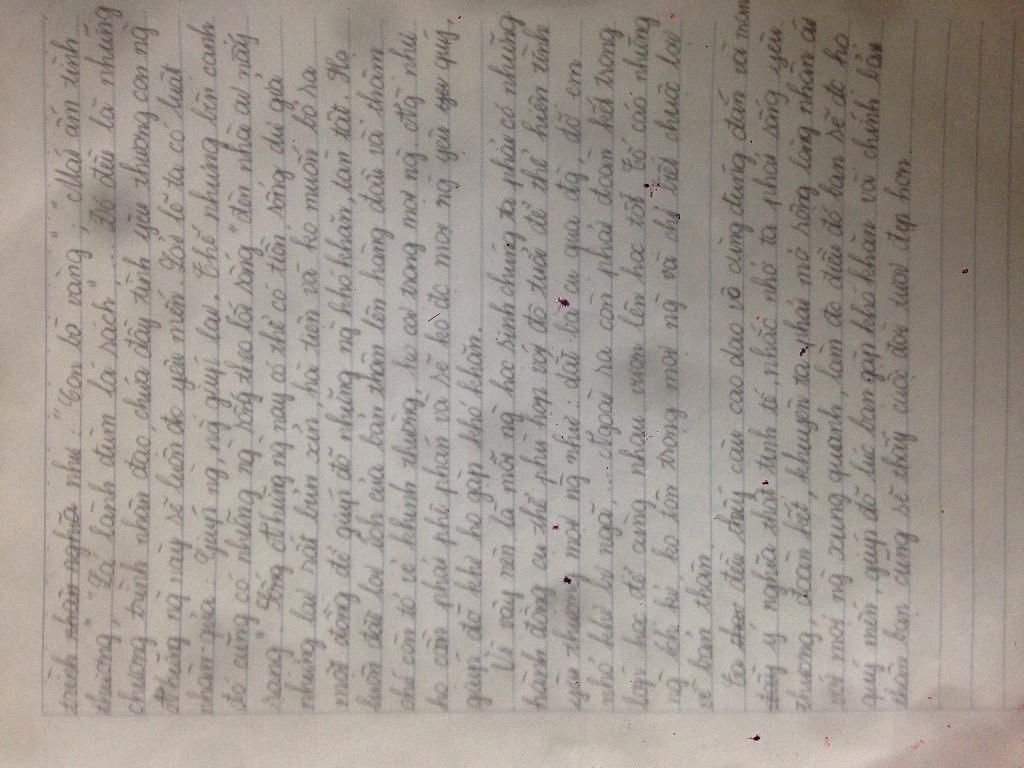 trình nhân nghĩa như: "Con bò vàng", "Mái ấm tình
thương", "Lá lành đùm lá rách",... Đó đều là những
chương trình nhân đạo, chứa đầy tình yêu thương con ng
Những ng này sẽ luôn đc yêu mến. Lời lẽ ta có luật
nhân-quả. Giúp ng, ng giúp lại. Thế nhưng bên cạnh
đó cũng có những ng sống theo lối sống "đèn nhà ai nấy
sáng". Những ng này có thể có tiền, sống dư giả
nhưng lại rất bủn xỉn, hà tiện và ko muốn bỏ ra
một đồng để giúp đỡ những ng khó khăn, tàn tật. Họ
luôn đặt lợi ích của bản thân lên hàng đầu và thậm
chí còn tỏ vẻ khinh thường, ko coi trọng mọi ng. Ng như
họ cần phải phê phán và sẽ ko đc mọi ng yêu quý,
giúp đỡ khi họ gặp khó khăn.
Vì vậy nên là mỗi ng học sinh chúng ta phải có những
hành động cụ thể phù hợp với độ tuổi để thể hiện tình
yêu thương mọi ng như: dắt bà cụ qua đg, đỡ em
nhỏ khi bị ngã,... Ngoài ra còn phải đoàn kết trong
lớp học để cùng nhau vươn lên học tốt. Tố cáo những
ng ích kỷ ko tôn trọng mọi ng và chỉ biết chuộc lợi
về bản thân
Ta đều thấy câu cao dao vô cùng đúng đắn và mang
ý nghĩa thật tinh tế, nhắc nhở ta phải sống yêu
thương, đoàn kết, khuyên ta phải mở rộng lòng nhân ái
với mọi ng xung quanh, làm đc điều đó bạn sẽ đc họ
quý mến, giúp đỡ lúc bạn gặp khó khăn và chính bản
thân bạn cũng sẽ thấy cuộc đời tươi đẹp hơn.